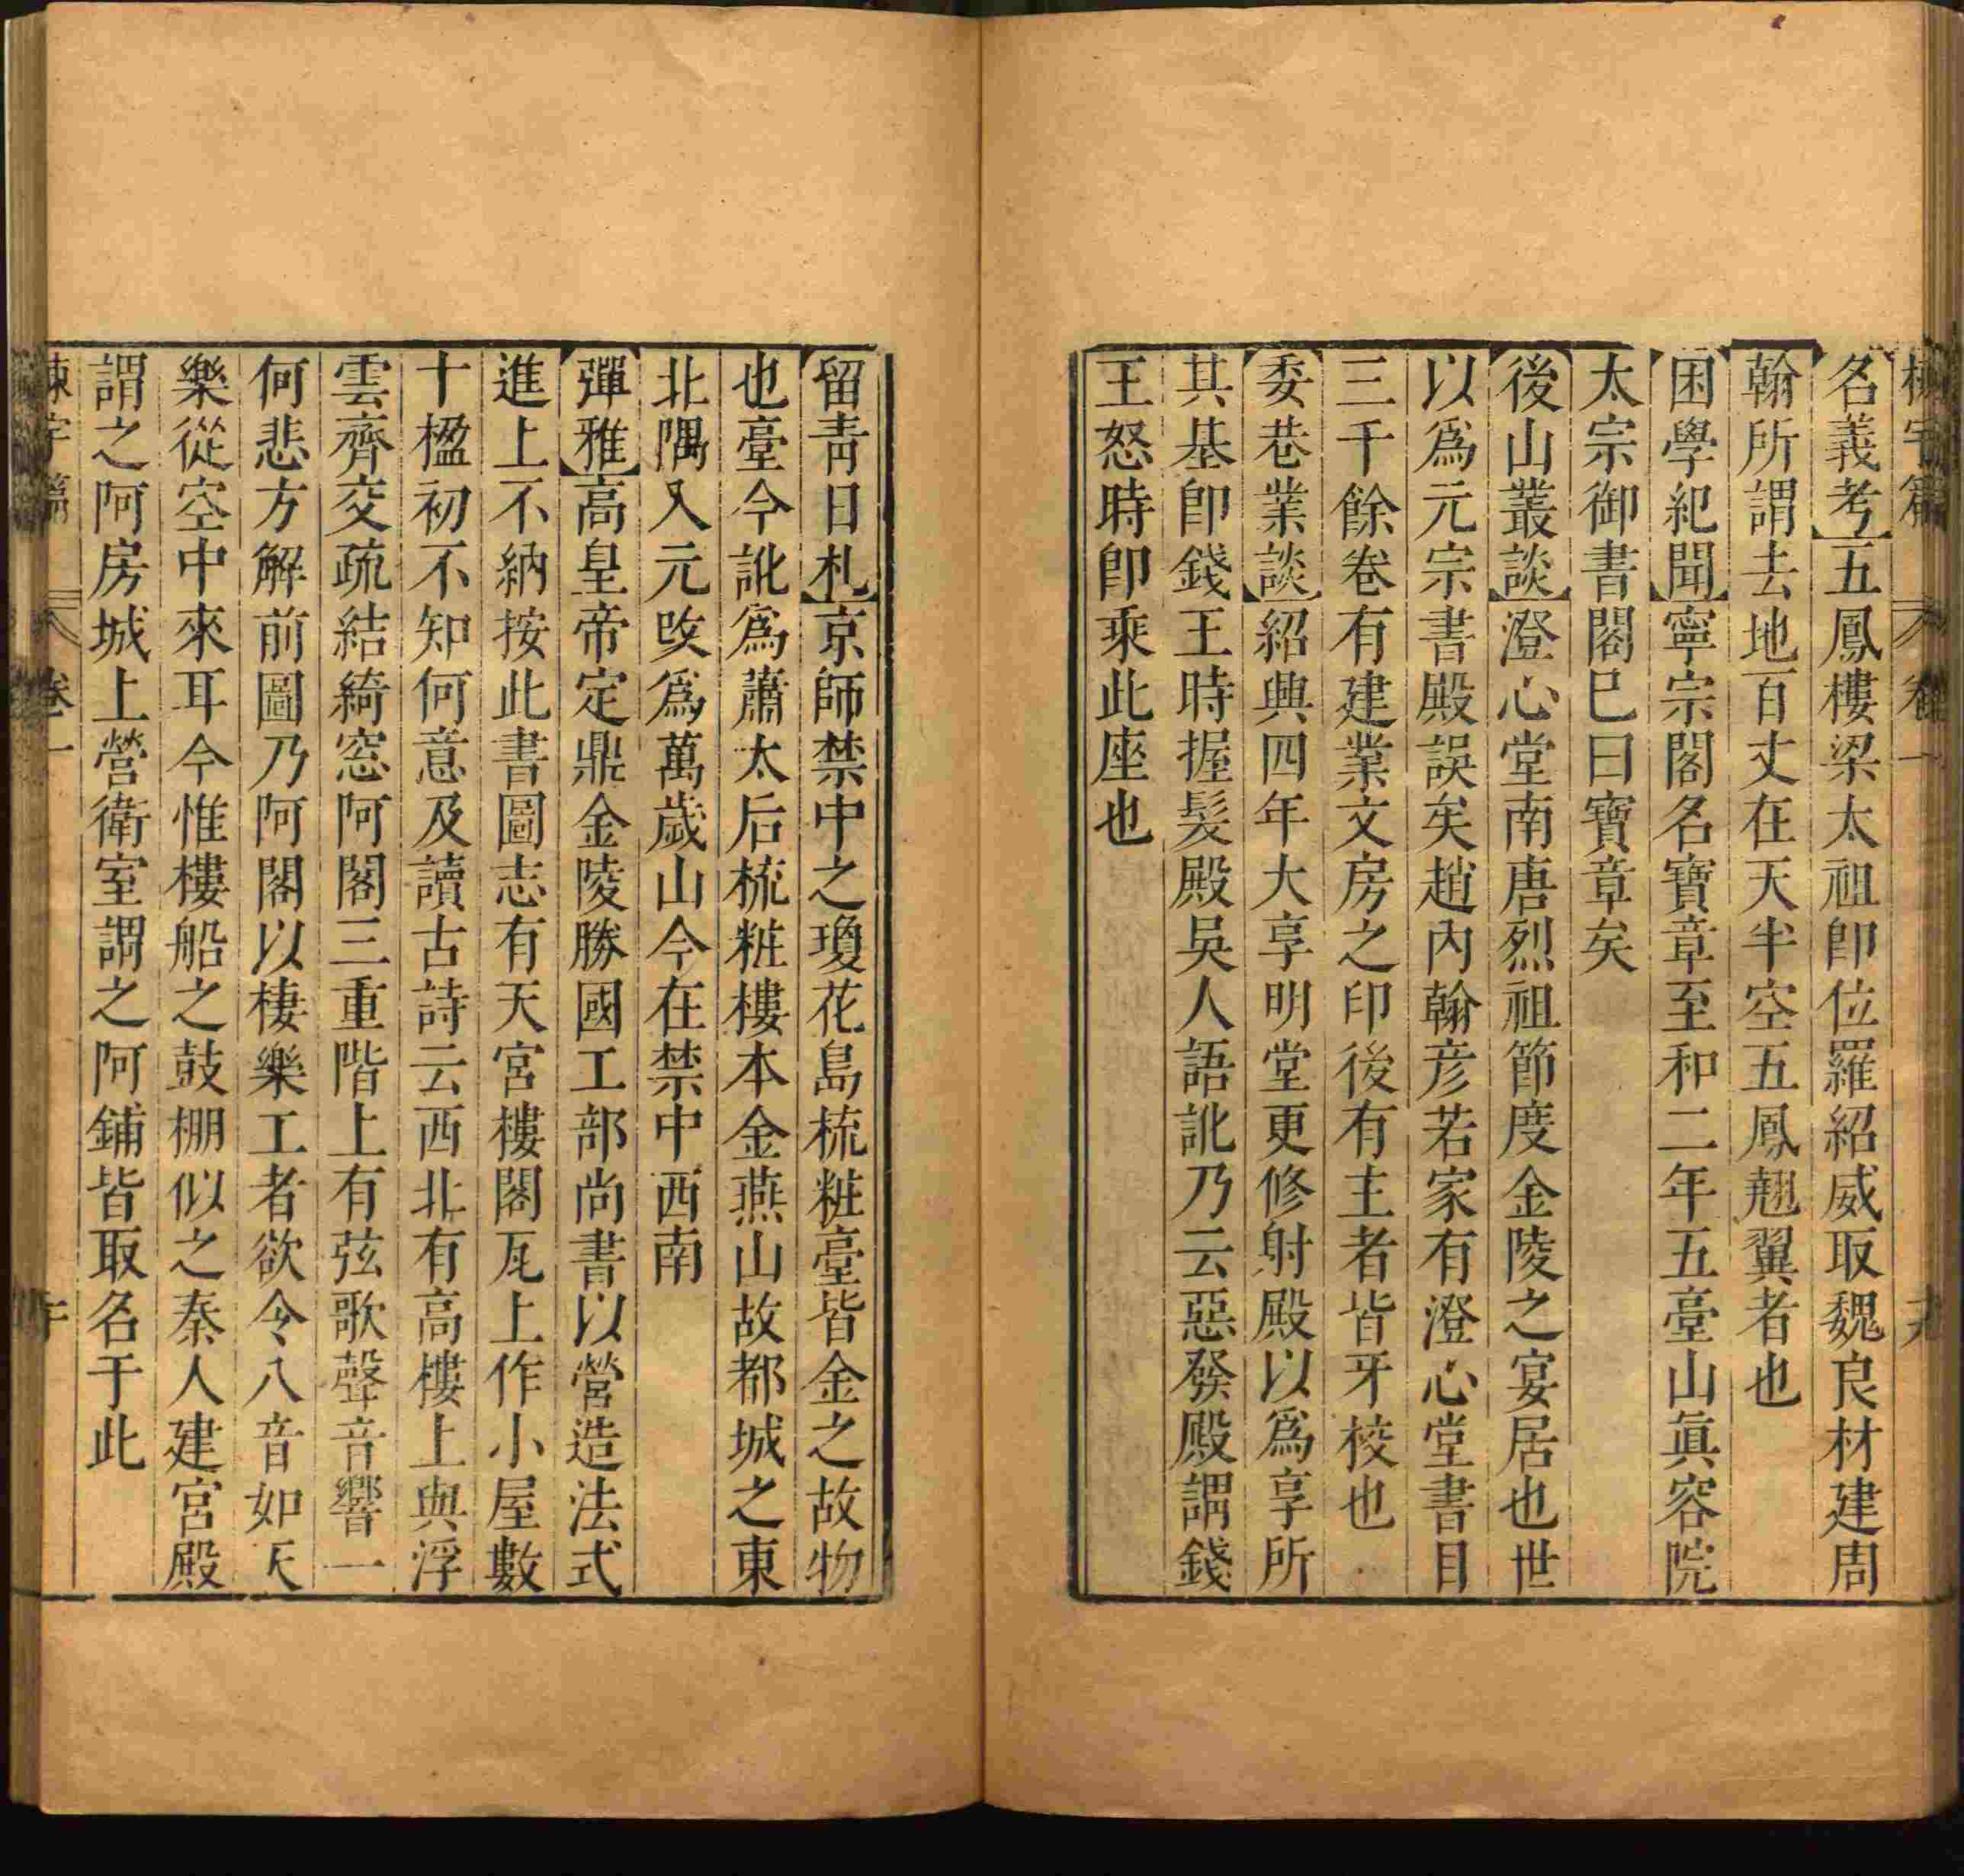 棟宇篇 卷一 十九
名義考五鳳樓梁太祖卽位羅紹威取魏良材建周
翰所謂去地百丈在天半空五鳳翹翼者也
困學紀聞寧宗閣名寶章至和二年五臺山眞容院
太宗御書閣巳曰寶章矣
後山叢談澄心堂南唐烈祖節度金陵之宴居也世
以爲元宗書殿誤矣趙內翰彦若家有澄心堂書目
三千餘卷有建業文房之印後有主者皆牙校也
委巷業談紹興四年大享明堂更修射殿以爲享所
其基卽錢王時握髮殿吳人語訛乃云惡發殿謂錢
王怒時卽乘此座也
留靑日札京師禁中之瓊花島梳粧臺皆金之故物
也臺今訛爲蕭太后梳粧樓本金燕山故都城之東
北隅又元攺爲萬歲山今在禁中西南
彈雅高皇帝定鼎金陵勝國工部尚書以營造法式
進上不納按此書圖志有天宮樓閣瓦上作小屋數
十楹初不知何意及讀古詩云西北有高樓上與浮
雲齊交疏結綺窓阿閣三重階上有弦歌聲音響一
何悲方解前圖乃阿閣以棲樂工者欲令八音如天
樂從空中來耳今惟樓船之鼓棚似之秦人建宮殿
謂之阿房城上營衛室謂之阿鋪皆取名于此
棟宇篇 卷一